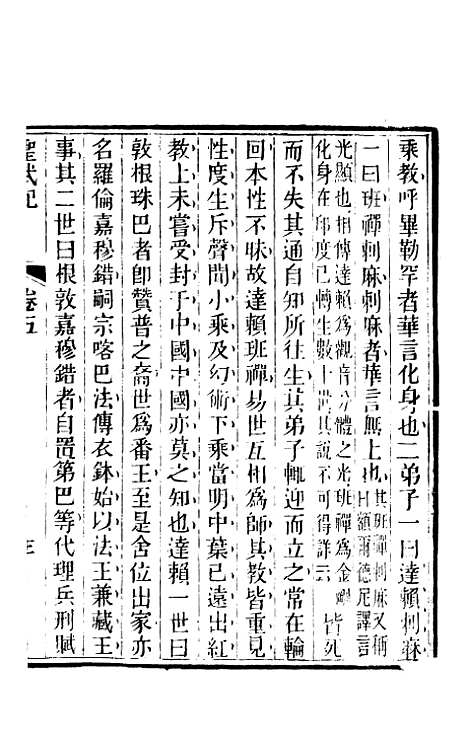 乘教呼畢勒罕者華言化身也二弟子一曰達賴剌麻
一曰班禪剌麻剌麻者華言無上也其班禪剌麻又稱
曰額爾德尼譯言
光顯也相傳達賴為觀音分體之光班禪為金
化身在印度已轉生數十世其說不可得詳云
皆死
而不失其通自知所往生其弟子輒迎而立之常在輪
回本性不昧故達賴班禪易世互相為師其教皆重見
性度生斥聲聞小乘及幻術下乘當明中葉已遠出紅
教上未嘗受封于中國中國亦莫之知也達賴一世曰
敦根珠巴者卽贊普之裔世為番王至是舍位出家亦
名羅倫嘉穆錯嗣宗喀巴法傳衣鉢始以法王兼藏王
事其二世曰根敦嘉穆錯者自置第巴等代理兵刑賦
聖武記
卷五
三